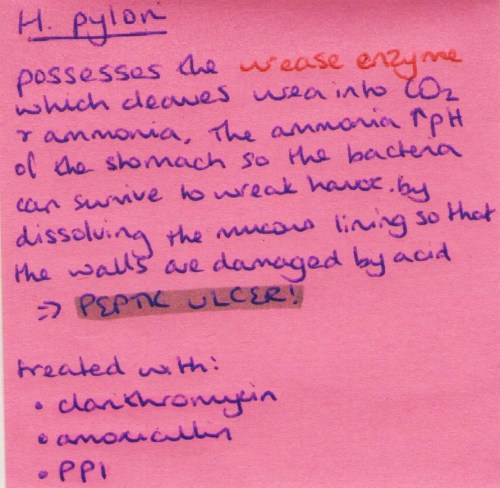 H. pylori
possesses the urease enzyme
which cleaves urea into CO2
+ ammonia. The ammonia ↑pH
of the stomach so the bacteria
can survive to wreak havoc.by
dissolving the mucous lining so that
the walls are damaged by acid
=> PEPTIC ULCER!
treated with:
• clarithromycin
• amoxicillin
• PPI